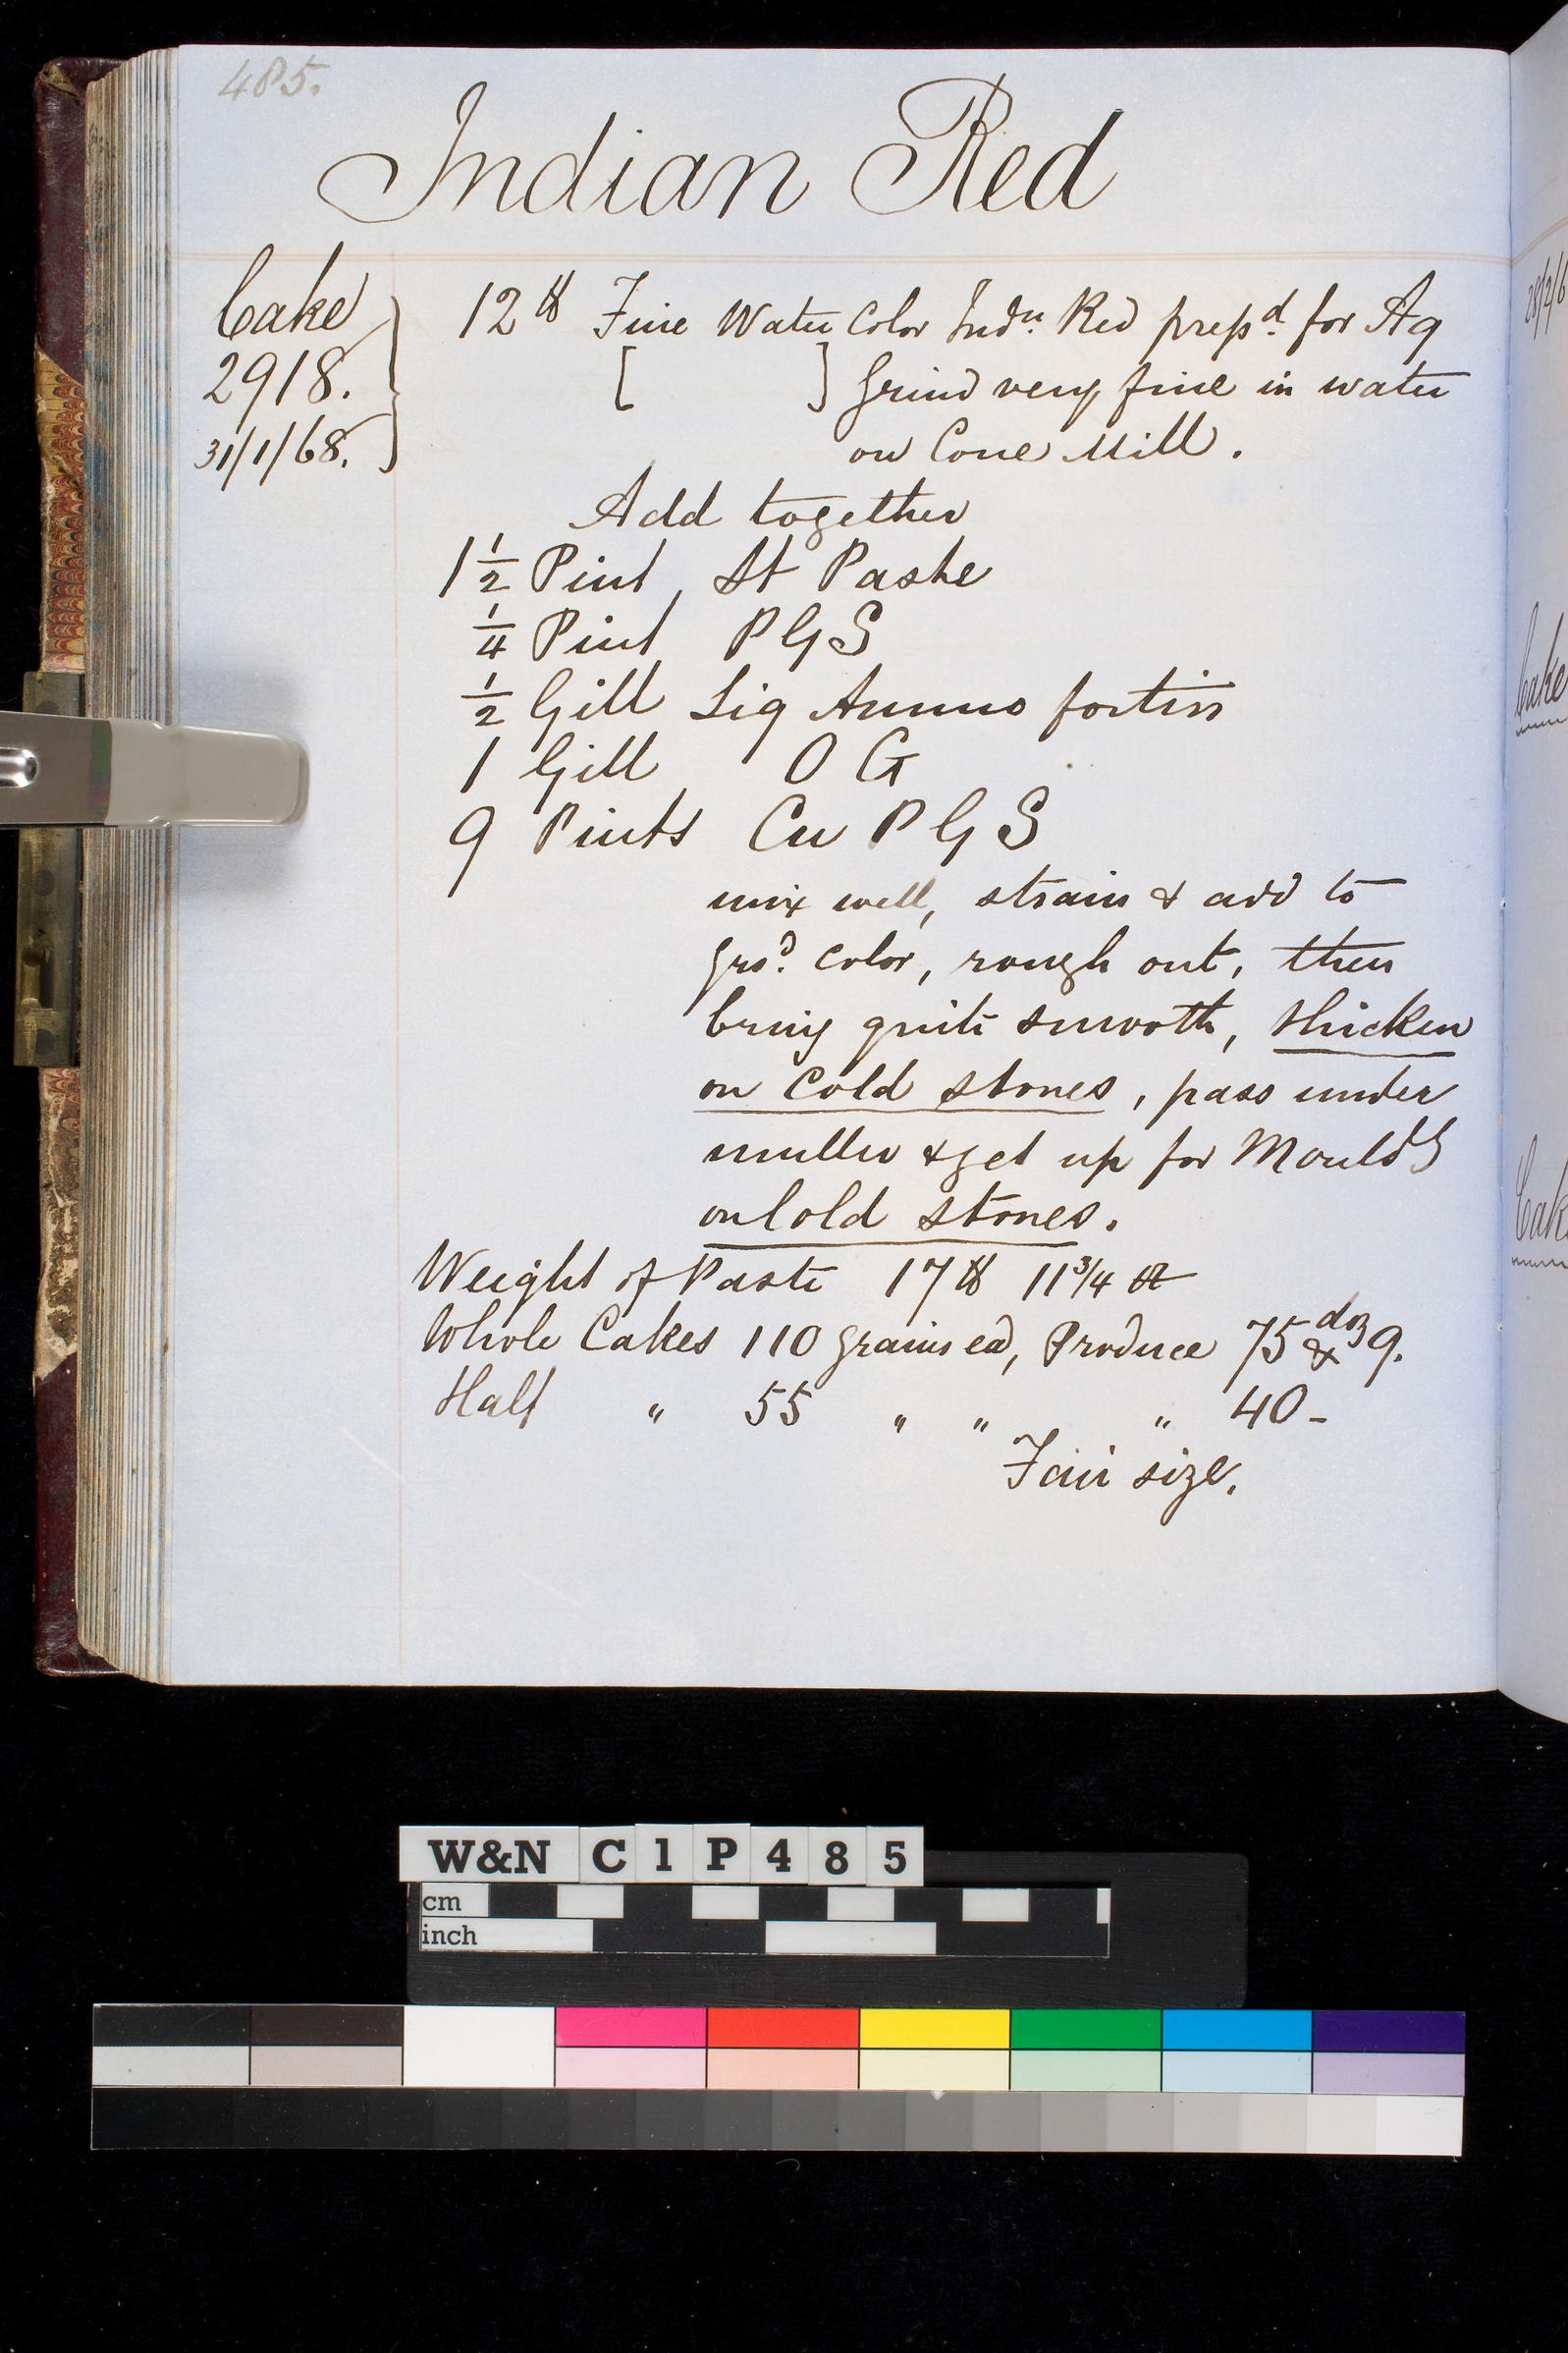 485.
Indian Red
Cake
2918.
31/1/68.
12 lb Fine Water Color Indn. Red prepd. for Aq
[ ] Grind very fine in water
on Cone Mill.
Add together
1 1/2 Pint, St Paste
1/4 Pint P G S
1/2 Gill Liq Ammo fortiss
1 Gill O G
9 Pints Cu P G S
mix well, strain & add to
grod. color, rough out, then
bring quite smooth, thicken
on Cold stones, pass under
muller & get up for Mouldg
on Cold stones.
Weight of Paste 17 lb 11 3/4 oz
Whole Cakes 110 grains ea, Produce 75 doz & 9.
Half " 55 " " " 40 -
Fair size.
28/2/6
Cake
Cak
W&N C1P485
cm
inch